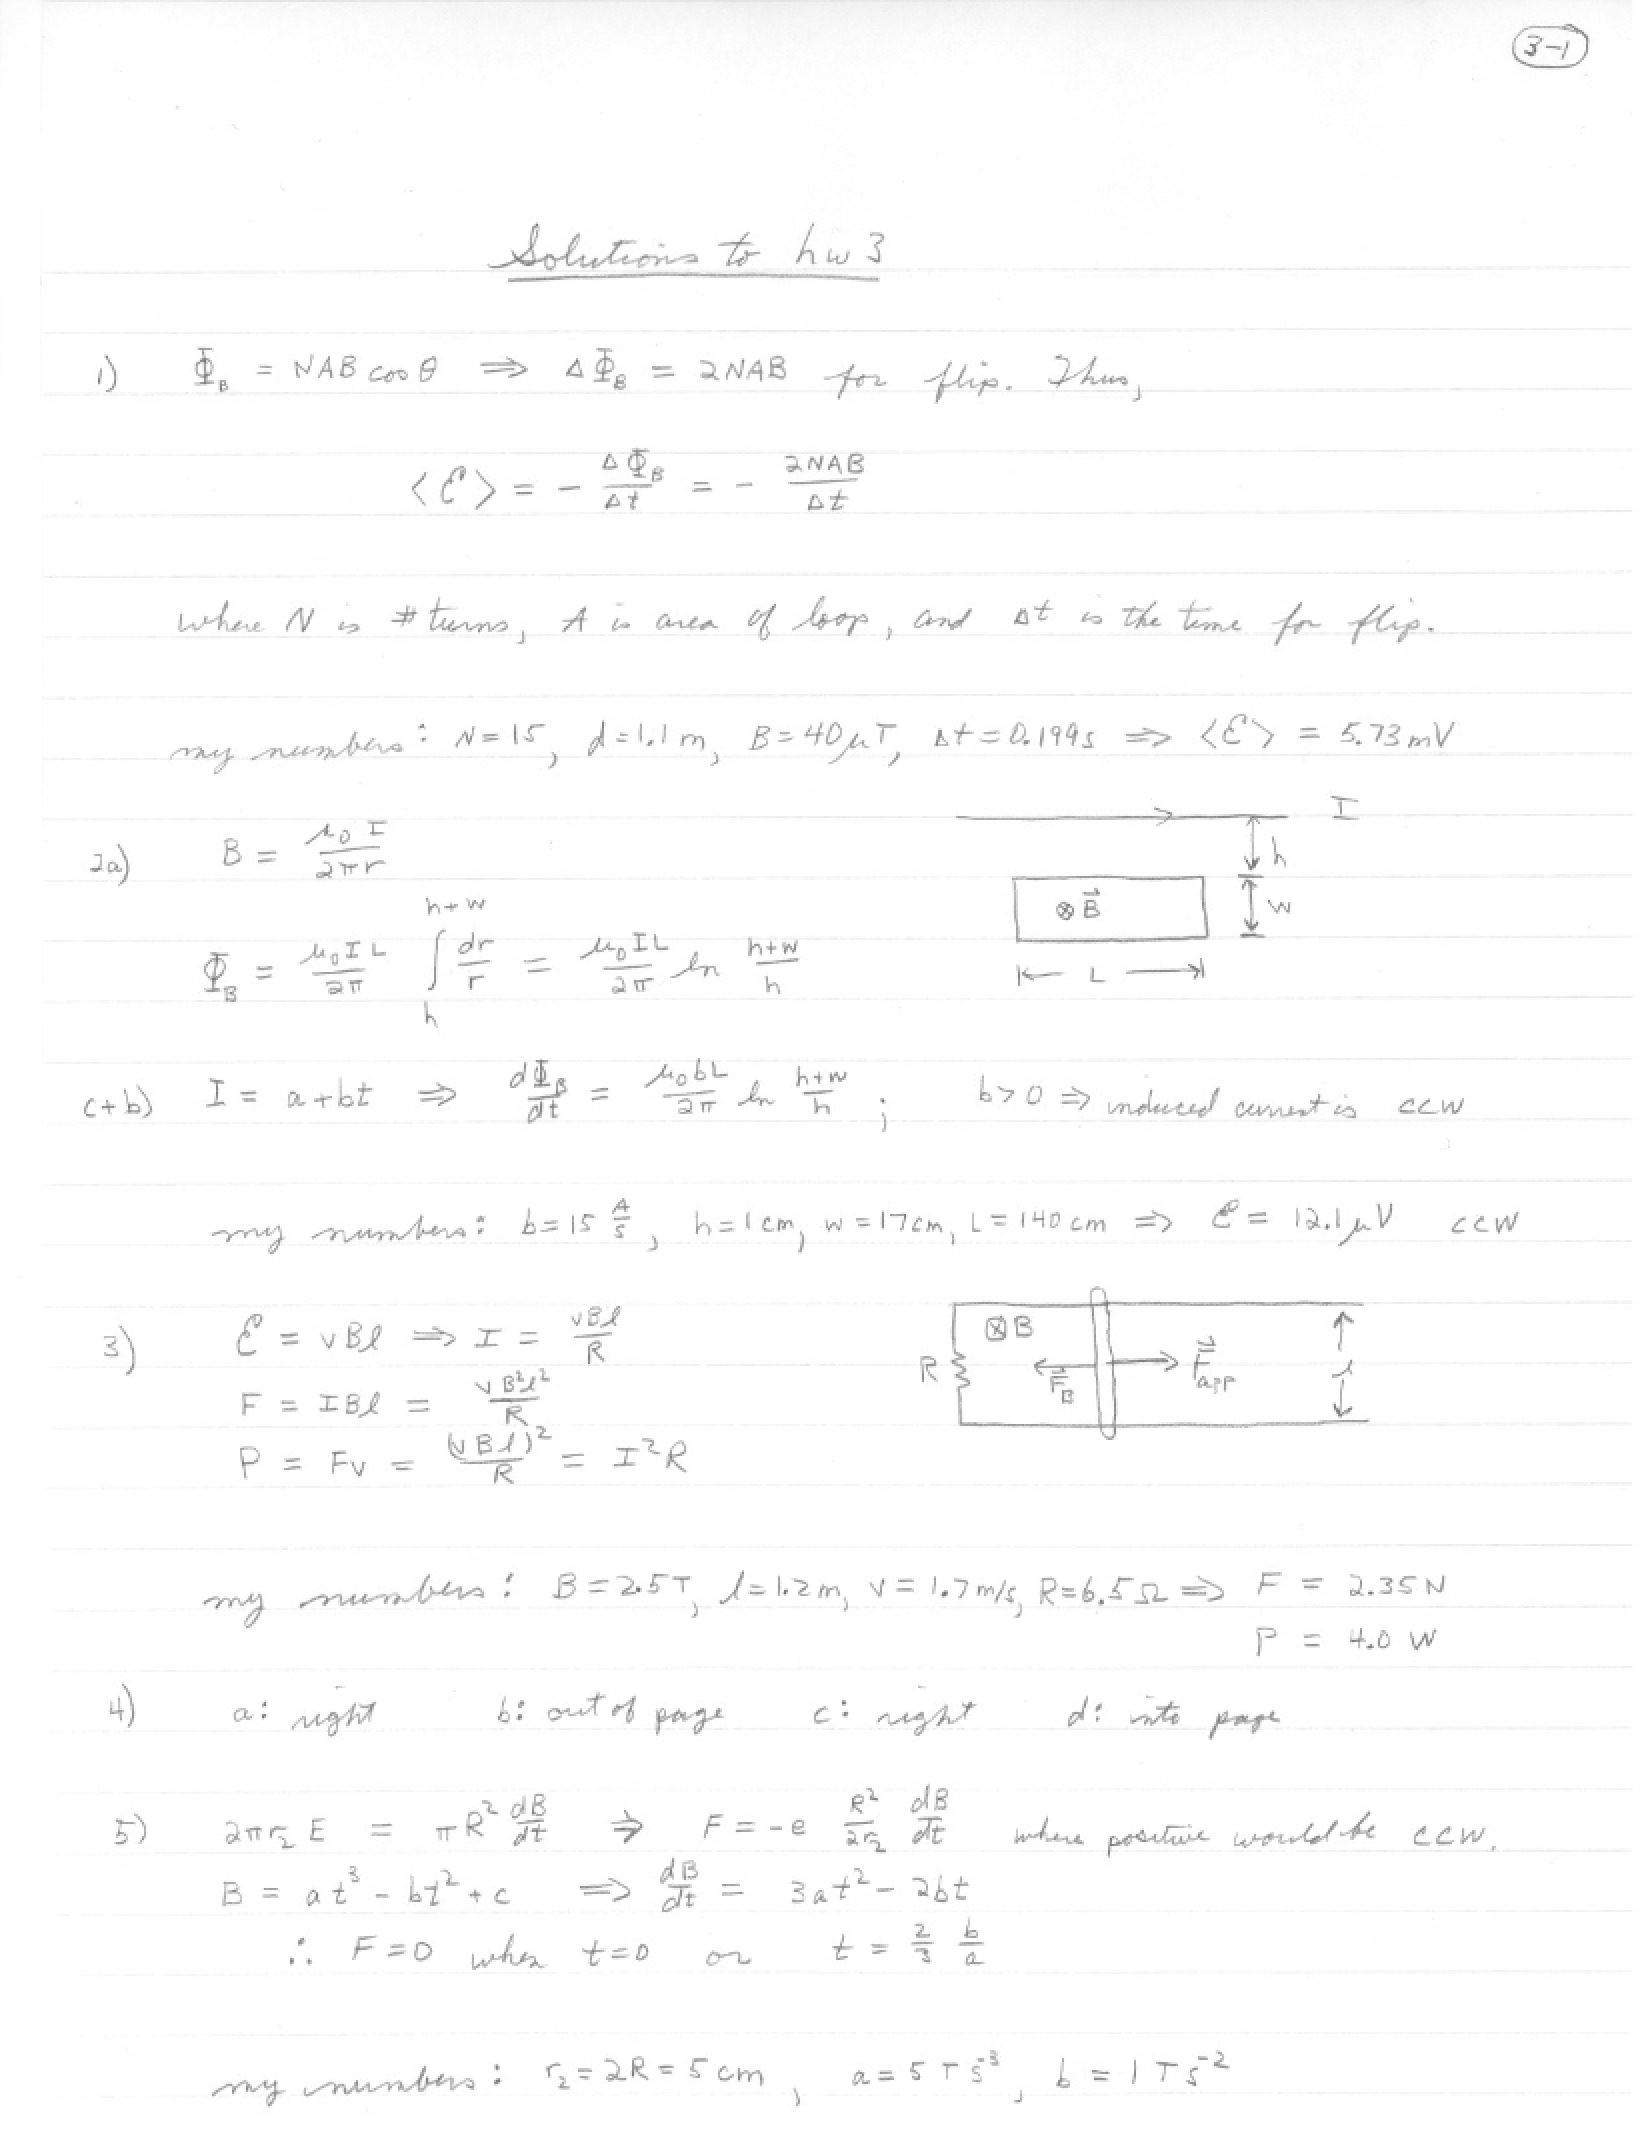 3-1
Solutions to hw 3
1) Φ_B = NAB cos θ ⇒ ΔΦ_B = 2NAB for flip. Thus,
⟨ℰ⟩ = - ΔΦ_B/Δt = - 2NAB/Δt
where N is # turns, A is area of loop, and Δt is the time for flip.
my numbers: N=15, d=1.1m, B=40μT, Δt=0.199s ⇒ ⟨ℰ⟩ = 5.73mV
2a) B = μ₀I/2πr
I
h
w
⊗ B⃗
L
Φ_B = μ₀IL/2π ∫_h^{h+w} dr/r = μ₀IL/2π ln (h+w)/h
c+b) I = a+bt ⇒ dΦ_B/dt = μ₀bL/2π ln (h+w)/h ; b>0 ⇒ induced current is ccw
my numbers: b=15 A/s, h=1cm, w=17cm, L=140cm ⇒ ℰ = 12.1μV ccw
3) ℰ = vBl ⇒ I = vBl/R
F = IBl = vB²l²/R
P = Fv = (vBl)²/R = I²R
⊗B
R
F⃗_B
F⃗_app
l
my numbers: B=2.5T, l=1.2m, v=1.7m/s, R=6.5Ω ⇒ F = 2.35N
P = 4.0 W
4) a: right b: out of page c: right d: into page
5) 2πr₂E = πR² dB/dt ⇒ F = -e R²/2r₂ dB/dt where positive would be ccw.
B = at³ - bt² + c ⇒ dB/dt = 3at² - 2bt
∴ F=0 when t=0 or t = 2/3 b/a
my numbers: r₂=2R=5cm, a=5Ts⁻³, b=1Ts⁻²